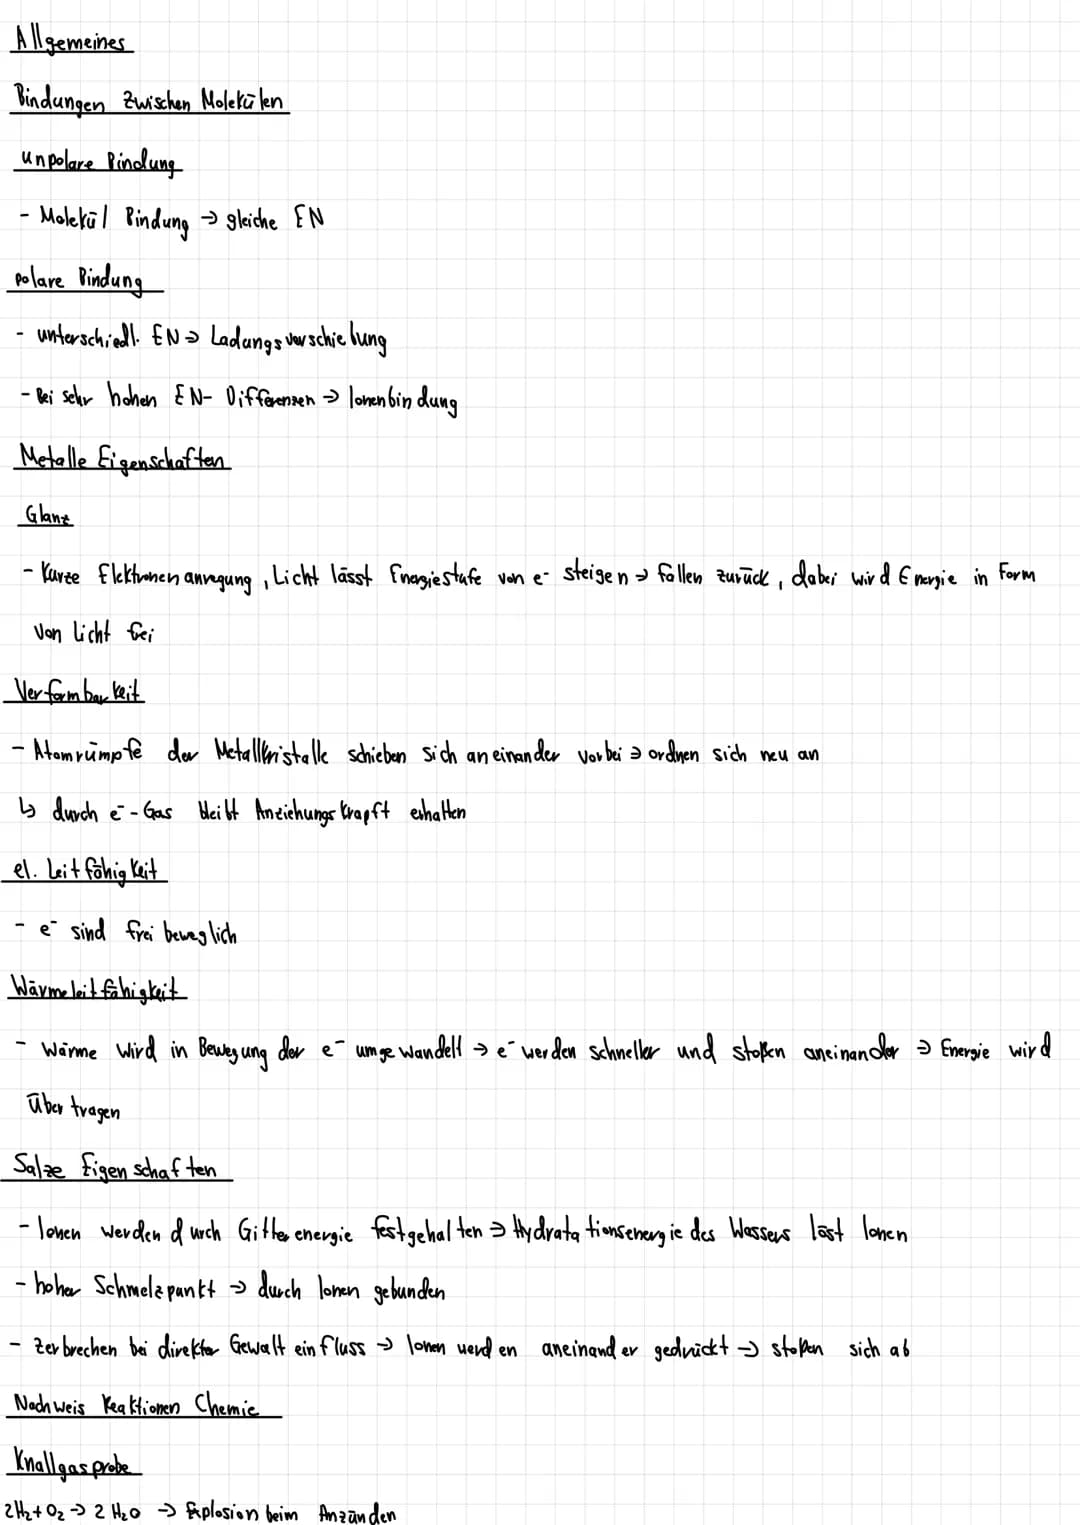 Allgemeines
Bindungen zwischen Molekülen
unpolare Bindung
- Molekül Bindung → gleiche EN
polare Bindung
- unterschiedl. EN → Ladungsverschiebung
- Bei sehr hohen EN- Differenzen → Ionenbindung
Metalle Eigenschaften
Glanz
- Kurze Elektronenanregung, Licht lässt Energiestufe von e⁻ steigen → fallen zurück, dabei wird Energie in Form
von Licht frei
Verformbarkeit
- Atomrümpfe der Metallkristalle schieben sich aneinander vorbei → ordnen sich neu an
↳ durch e⁻-Gas bleibt Anziehungskrapft erhalten
el. Leitfähigkeit
- e⁻ sind frei beweglich
Wärmeleitfähigkeit
- Wärme wird in Bewegung der e⁻ umgewandelt → e⁻ werden schneller und stoßen aneinander → Energie wird
übertragen
Salze Eigenschaften
- Ionen werden durch Gitterenergie festgehalten → Hydratationsenergie des Wassers löst Ionen
- hoher Schmelzpunkt → durch Ionen gebunden
- zerbrechen bei direkter Gewalteinfluss → Ionen werden aneinander gedrückt → stoßen sich ab
Nachweis Reaktionen Chemie
Knallgasprobe
2H₂+O₂ → 2 H₂O → Explosion beim Anzünden